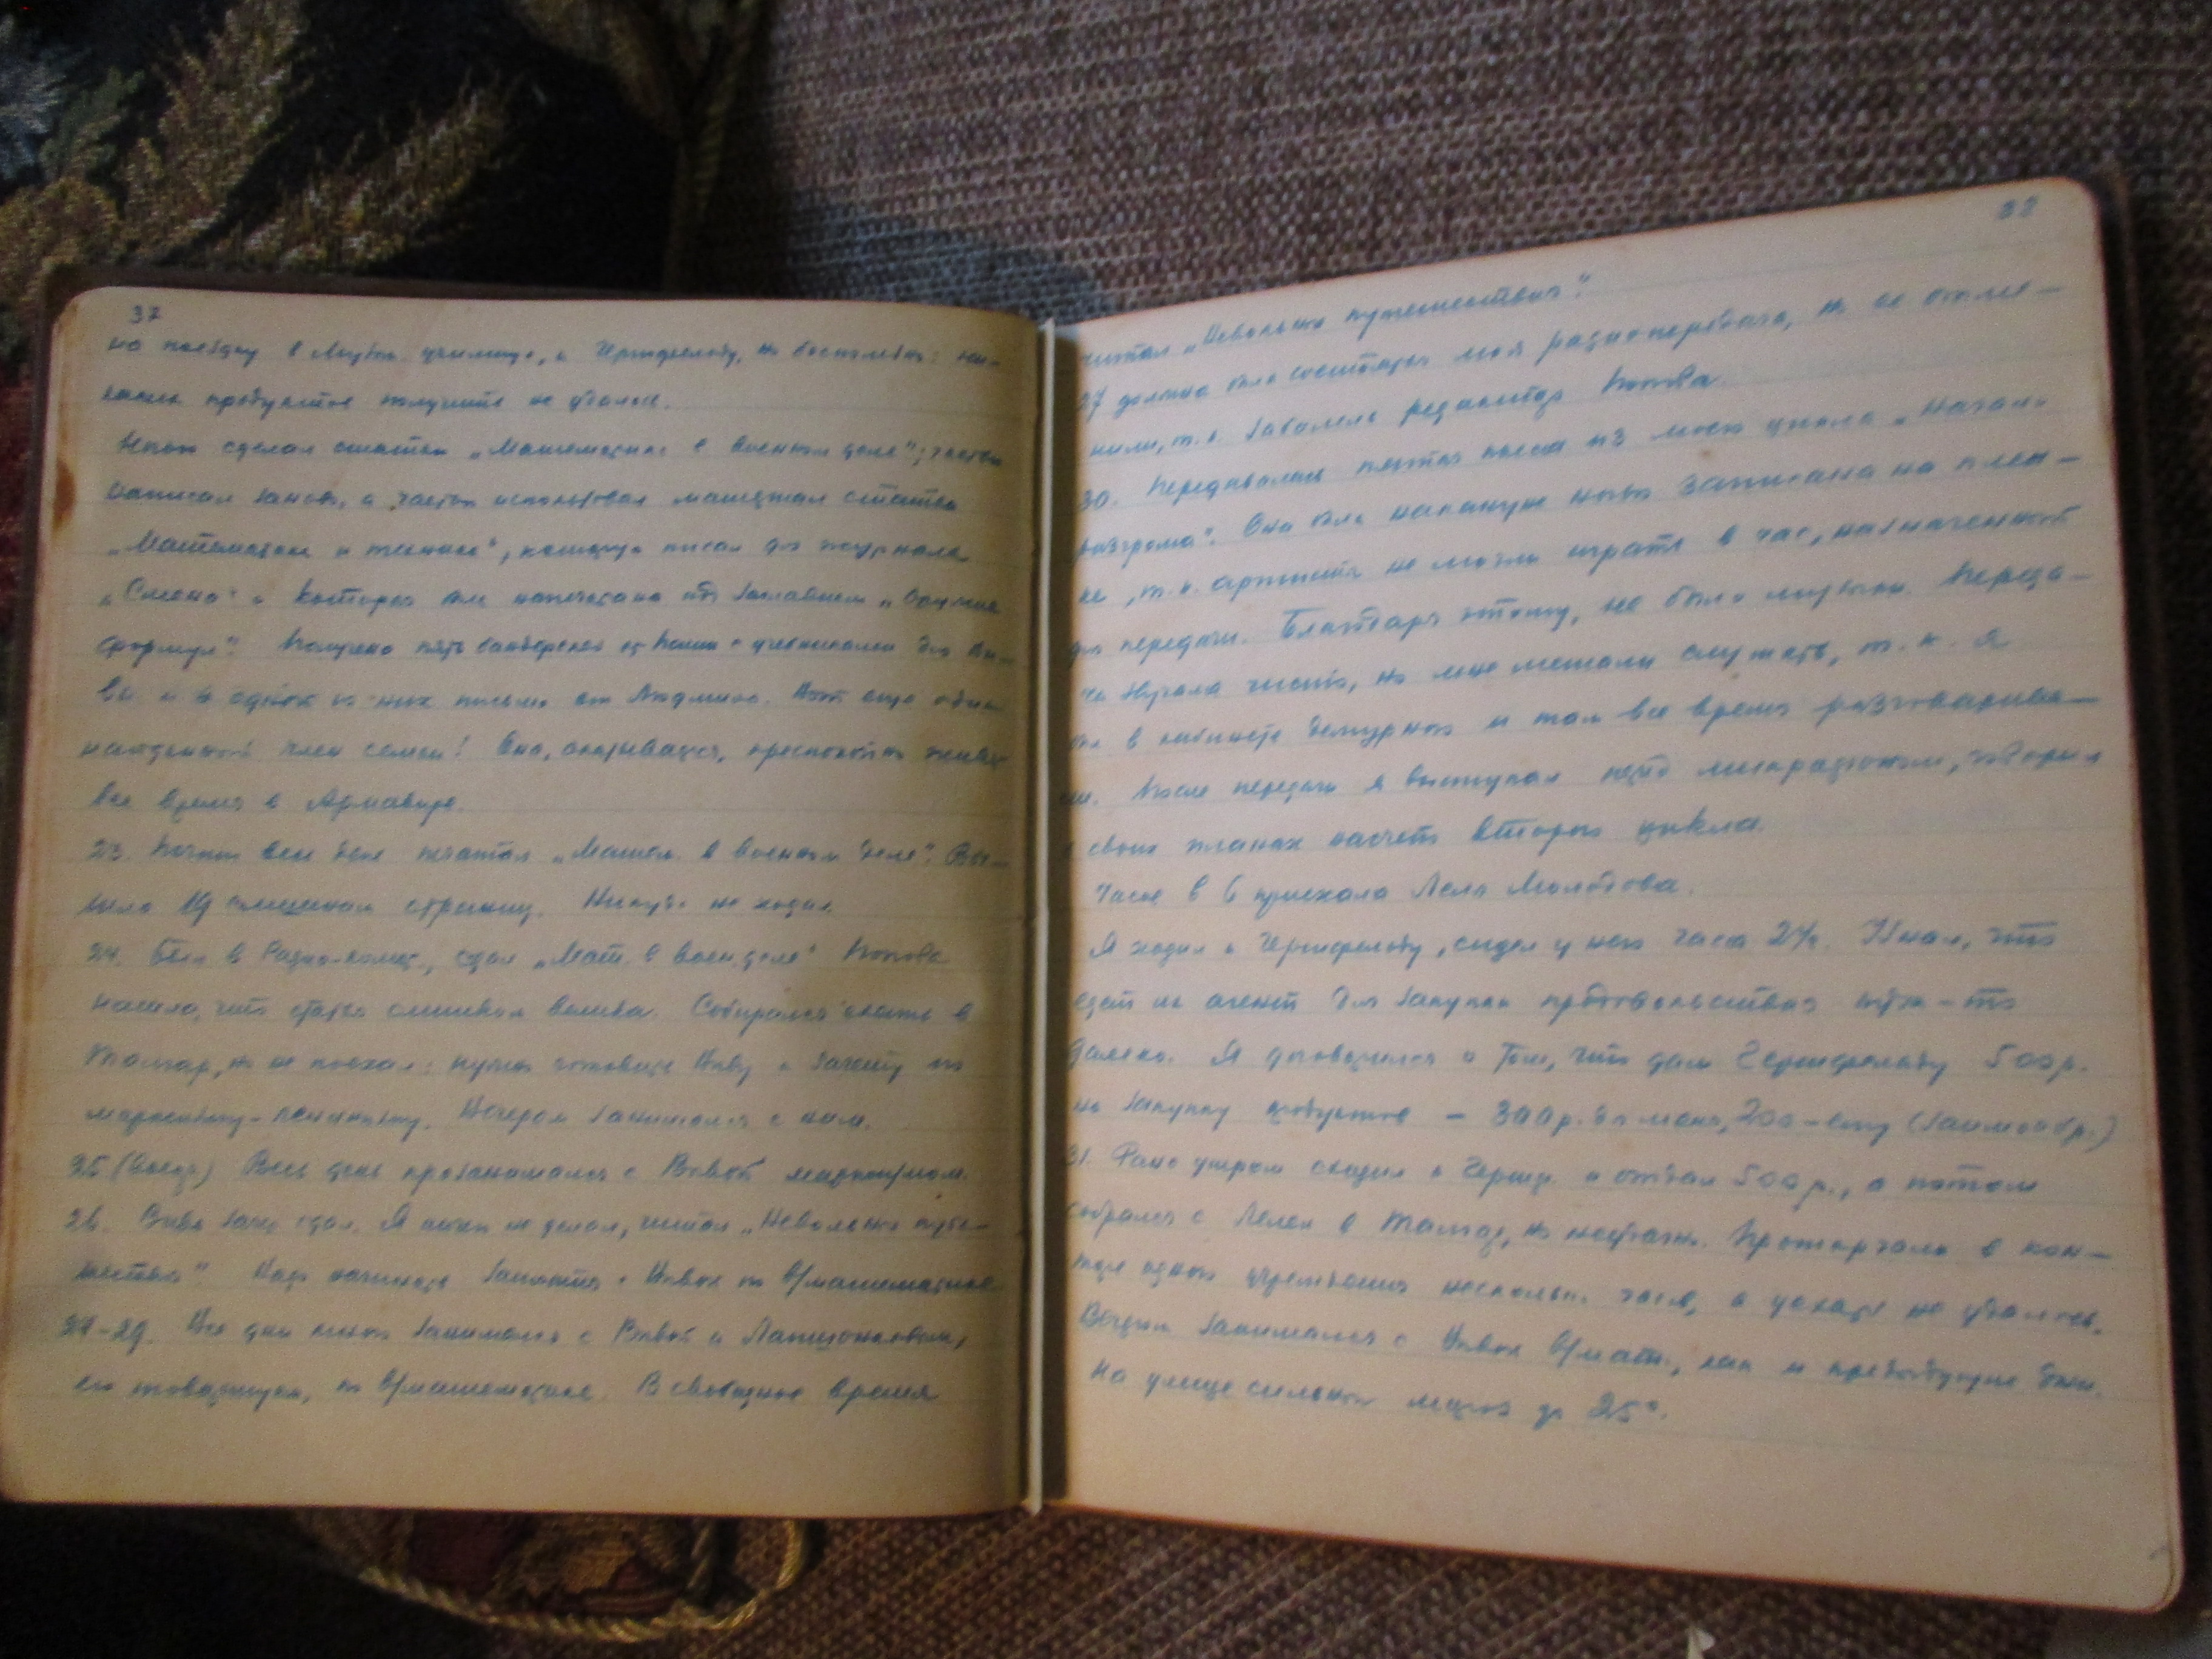 37
на поездку в училище, к Герцфельду, но
продуктов получить не удалось.
сделал статью „Математика в военном деле“; частью
написал заново, а частью использовал материал статьи
„Математика и техника“, которую писал для журнала
„Смена“ и которая была напечатана под заглавием „Оружие
формул“. Получено пять бандеролей от с учебниками для Ви-
ви и в одной из них письмо от Людмилы. Вот еще один
найденный член семьи! Она, оказывается, преспокойно живет
все время в Армавире.
23. Почти весь день печатал „Матем. в военном деле“. Вы-
шло страниц. Никуда не ходил.
24. Был в Радио-комит., сдал „Мат. в воен. деле“ Попова
нашла, что статья слишком велика. Собирался ехать в
Талгар, но не поехал: нужно готовить Виву к зачету по
марксизму-ленинизму. Вечером занимался с ним.
25 (воскр.) Весь день прозанимался с Вивой марксизмом.
26. Вива зачет сдал. Я ничего не делал, читал „Невольные путе-
шествия“. Надо начинать занятия с Вивой по в/математике.
27-29. Все дни много занимался с Вивой и
его товарищем, по в/математике. В свободное время
38
читал „Невольные путешествия“.
27 должна была состояться моя радиопередача, но ее отме-
нили, т.к. заболела редактор Попова.
30. Передавалась пятая пьеса из моего цикла „Начало
разгрома“. Она была накануне ночью записана на плен-
ке, т.к. артисты не могли играть в час, назначенный
для передачи. Благодаря этому, не было музыки. Переда-
ча звучала чисто, но мне мешали слушать, т.к. я
был в кабинете дежурного и там все время разговарива-
ли. После передачи я выступал перед микрофоном, говорил
о своих планах насчет второго цикла.
Часов в 6 приехала Леля Молодова.
Я ходил к Герцфельду, сидел у него часа 2½. Узнал, что
едет их агент для закупки продовольствия куда-то
далеко. Я договорился о том, что дам Герцфельду 500 р.
на закупку продуктов – 300 р. для меня, 200 – ему (заимообр.)
31. Рано утром сходил к Герцф. и отдал 500 р., а потом
собрался с Лелей в Талгар, но неудачно. Проторчали в кон-
торе одного учреждения несколько часов, а уехать не удалось.
Вечером занимался с Вивой в/мат., как и предыдущие дни.
На улице сильный мороз до 25°.